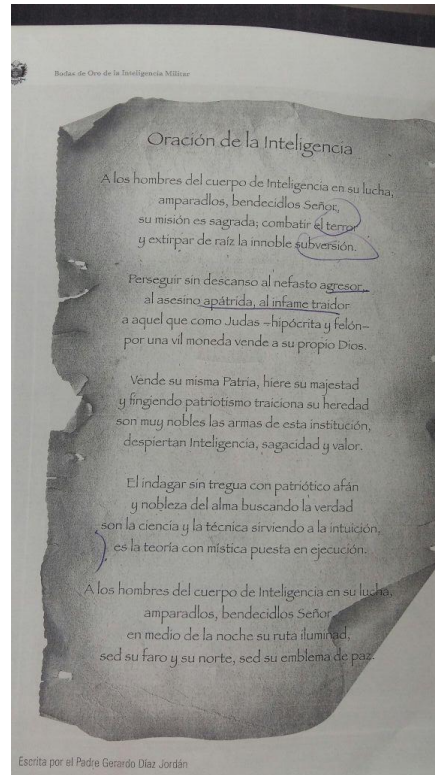 Bodas de Oro de la Inteligencia Militar
Oración de la Inteligencia
A los hombres del cuerpo de Inteligencia en su lucha,
amparadlos, bendecidlos Señor,
su misión es sagrada; combatir el terror
y extirpar de raíz la innoble subversión.
Perseguir sin descanso al nefasto agresor,
al asesino apátrida, al infame traidor
a aquel que como Judas -hipócrita y felón-
por una vil moneda vende a su propio Dios.
Vende su misma Patria, hiere su majestad
y fingiendo patriotismo traiciona su heredad
son muy nobles las armas de esta institución,
despiertan Inteligencia, sagacidad y valor.
El indagar sin tregua con patriótico afán
y nobleza del alma buscando la verdad
son la ciencia y la técnica sirviendo a la intuición,
es la teoría con mística puesta en ejecución.
A los hombres del cuerpo de Inteligencia en su lucha,
amparadlos, bendecidlos Señor,
en medio de la noche su ruta iluminad,
sed su faro y su norte, sed su emblema de paz.
Escrita por el Padre Gerardo Díaz Jordán